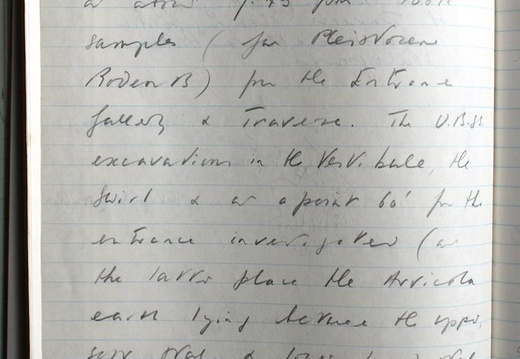 at about 7.45 pm. Took
samples (for Pleistocene
Rodents) from the Entrance
Gallery & Traverse. The U.B.SS
excavations in the Vestibule, the
Swirl & at a point 60' from the
entrance investigated (at
the latter place the Arvicola
earth lying between the upper